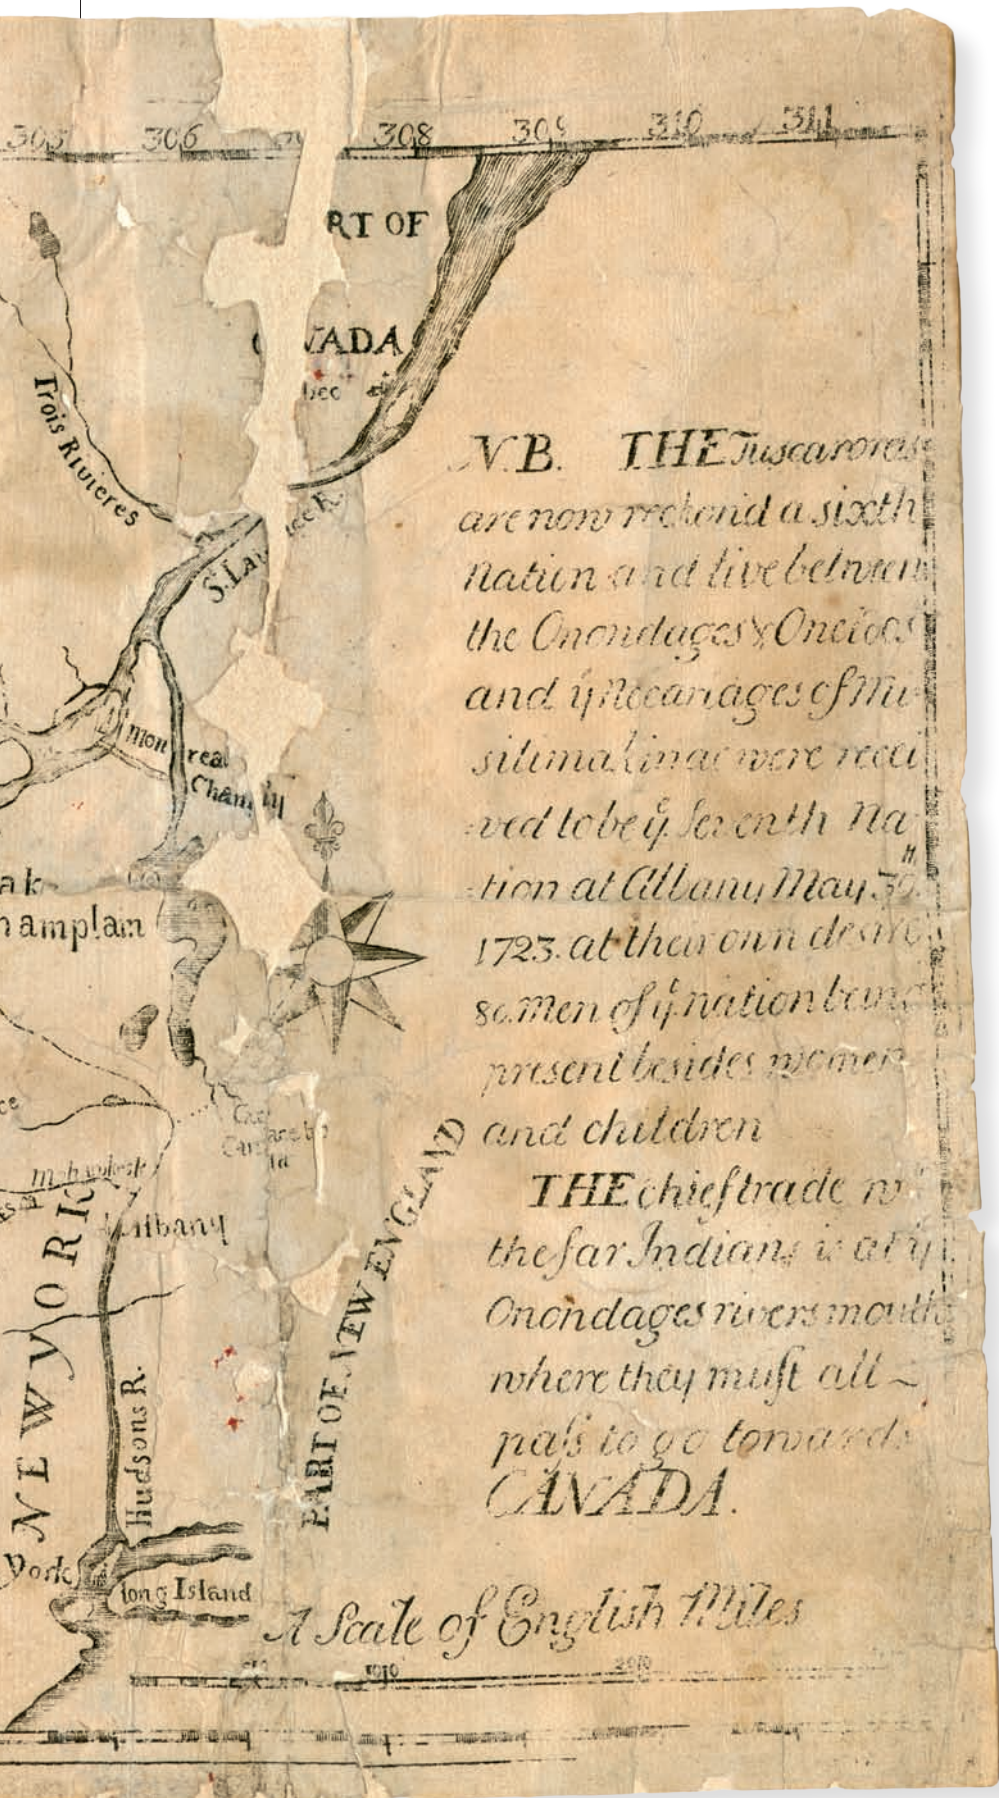 305 306 308 309 310 311
RT OF
NADA
bec
Trois Rivieres
S. Lau ence R.
mon real
Cham
ak
hamplain
Mohawks
Albany
NEW YORK
Hudsons R.
York
long Island
PART OF NEW ENGLAND
N.B. THE Tuscarores
are now reckond a sixth
Nation and live between
the Onondages & Oneioes
and ẙ Necariages of Mi-
silimakinac were recei
-ved to be ẙ Seventh Na
-tion at Albany May 30.th
1723. at their own desire
80. Men of ẙ nation being
present besides women
and children
THE chief trade wth
the far Indians is at ẙ
Onondages rivers mouth
where they muſt all ~
paſs to go towards
CANADA.
A Scale of English Miles
100 200